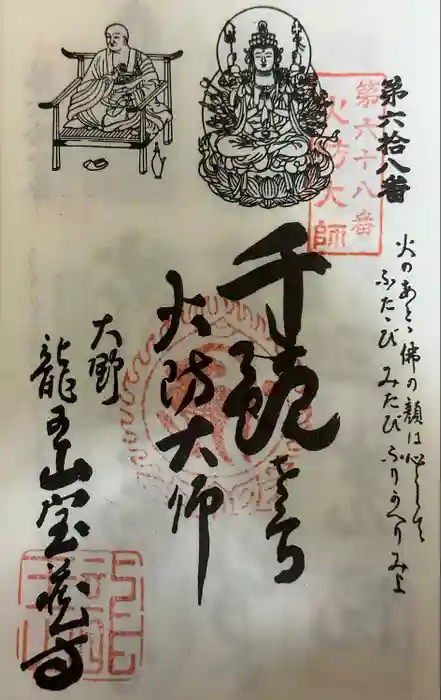 第六拾八番
第六十八番
火防大師
火のあと佛の顔は心して
ふたゝび みたび ふりかへりみよ
千観さつ
火防大師
大野
龍王山宝蔵寺